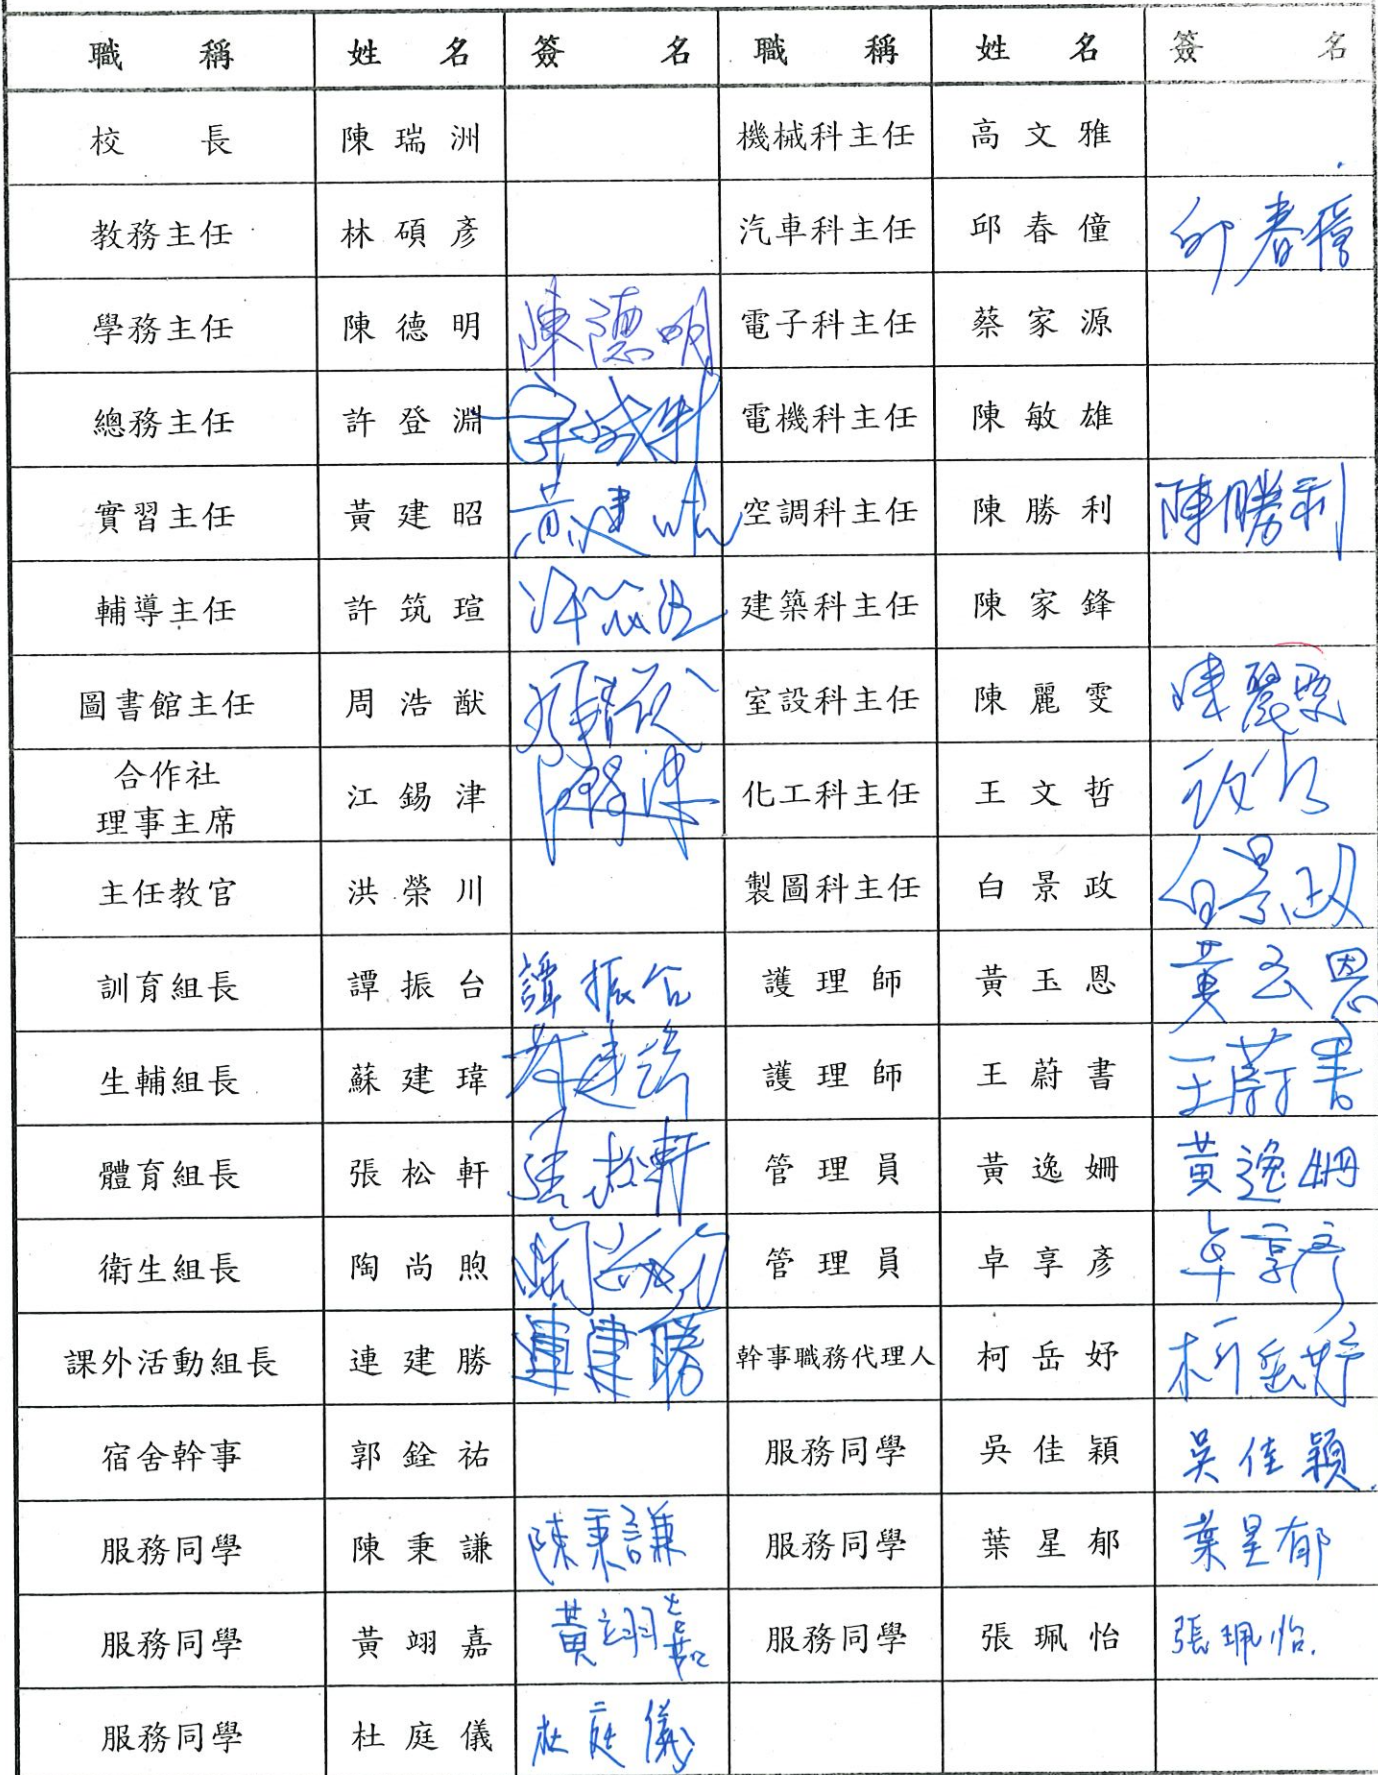 職稱 姓名 簽名 職稱 姓名 簽名
校長 陳瑞洲 機械科主任 高文雅
教務主任 林碩彥 汽車科主任 邱春僮 邱春僮
學務主任 陳德明 陳德明 電子科主任 蔡家源
總務主任 許登淵 電機科主任 陳敏雄
實習主任 黃建昭 黃建昭 空調科主任 陳勝利 陳勝利
輔導主任 許筑瑄 建築科主任 陳家鋒
圖書館主任 周浩猷 室設科主任 陳麗雯 陳麗雯
合作社
理事主席 江錫津 化工科主任 王文哲
主任教官 洪榮川 製圖科主任 白景政 白景政
訓育組長 譚振台 譚振台 護理師 黃玉恩 黃玉恩
生輔組長 蘇建瑋 護理師 王蔚書 王蔚書
體育組長 張松軒 張松軒 管理員 黃逸姍 黃逸姍
衛生組長 陶尚煦 管理員 卓享彥 卓享彥
課外活動組長 連建勝 連建勝 幹事職務代理人 柯岳妤 柯岳妤
宿舍幹事 郭銓祐 服務同學 吳佳穎 吳佳穎
服務同學 陳秉謙 陳秉謙 服務同學 葉星郁 葉星郁
服務同學 黃翊嘉 黃翊嘉 服務同學 張珮怡 張珮怡.
服務同學 杜庭儀 杜庭儀